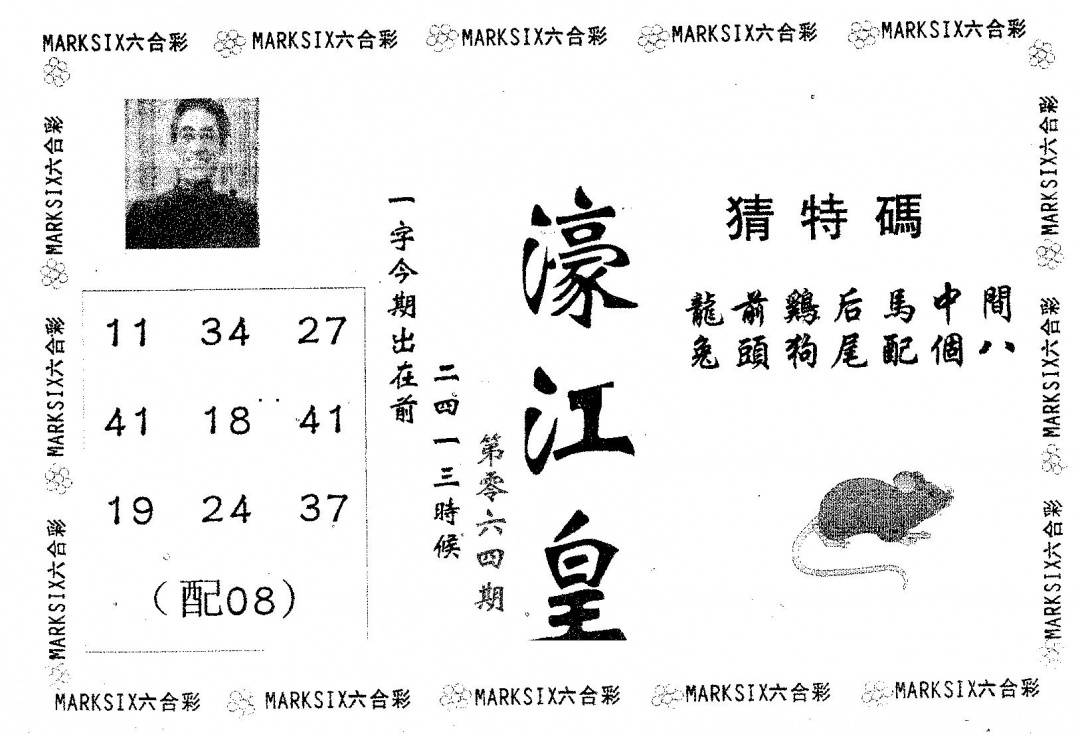 MARKSIX六合彩 MARKSIX六合彩 MARKSIX六合彩 MARKSIX六合彩 MARKSIX六合彩
MARKSIX六合彩
MARKSIX六合彩
MARKSIX六合彩
MARKSIX六合彩
MARKSIX六合彩
MARKSIX六合彩
猜特碼
龍前鷄后馬中間
兔頭狗尾配個八
濠江皇
第零六四期
一字今期出在前
二四一三時候
11 34 27
41 18 41
19 24 37
(配08)
MARKSIX六合彩 MARKSIX六合彩 MARKSIX六合彩 MARKSIX六合彩 MARKSIX六合彩